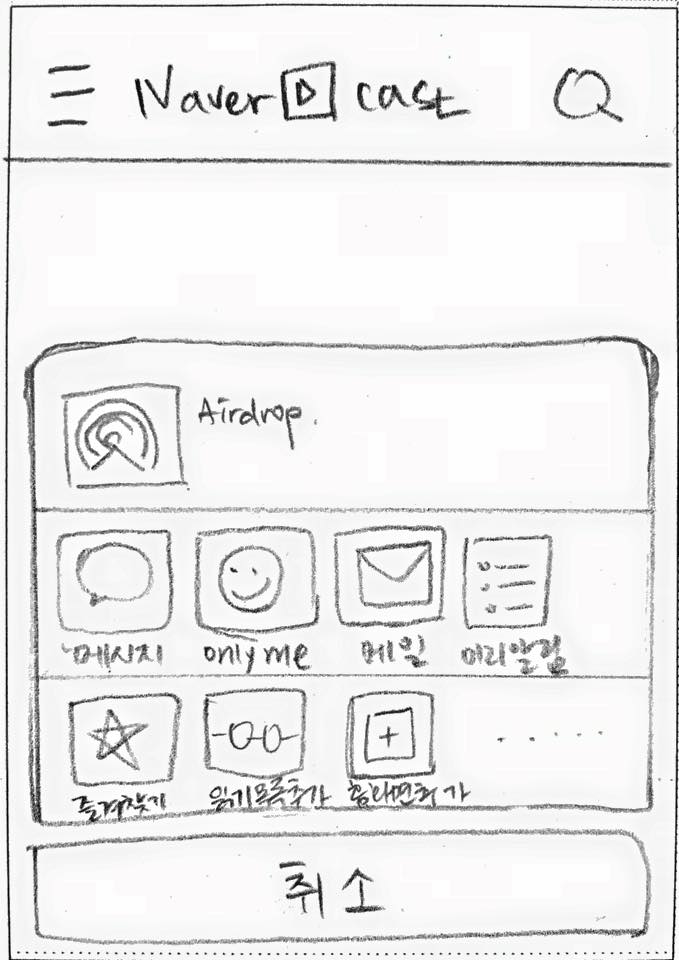 Naver cast
Airdrop.
메시지 only me 메일 미리알림
즐겨찾기 읽기목록추가 홈화면추가
취소